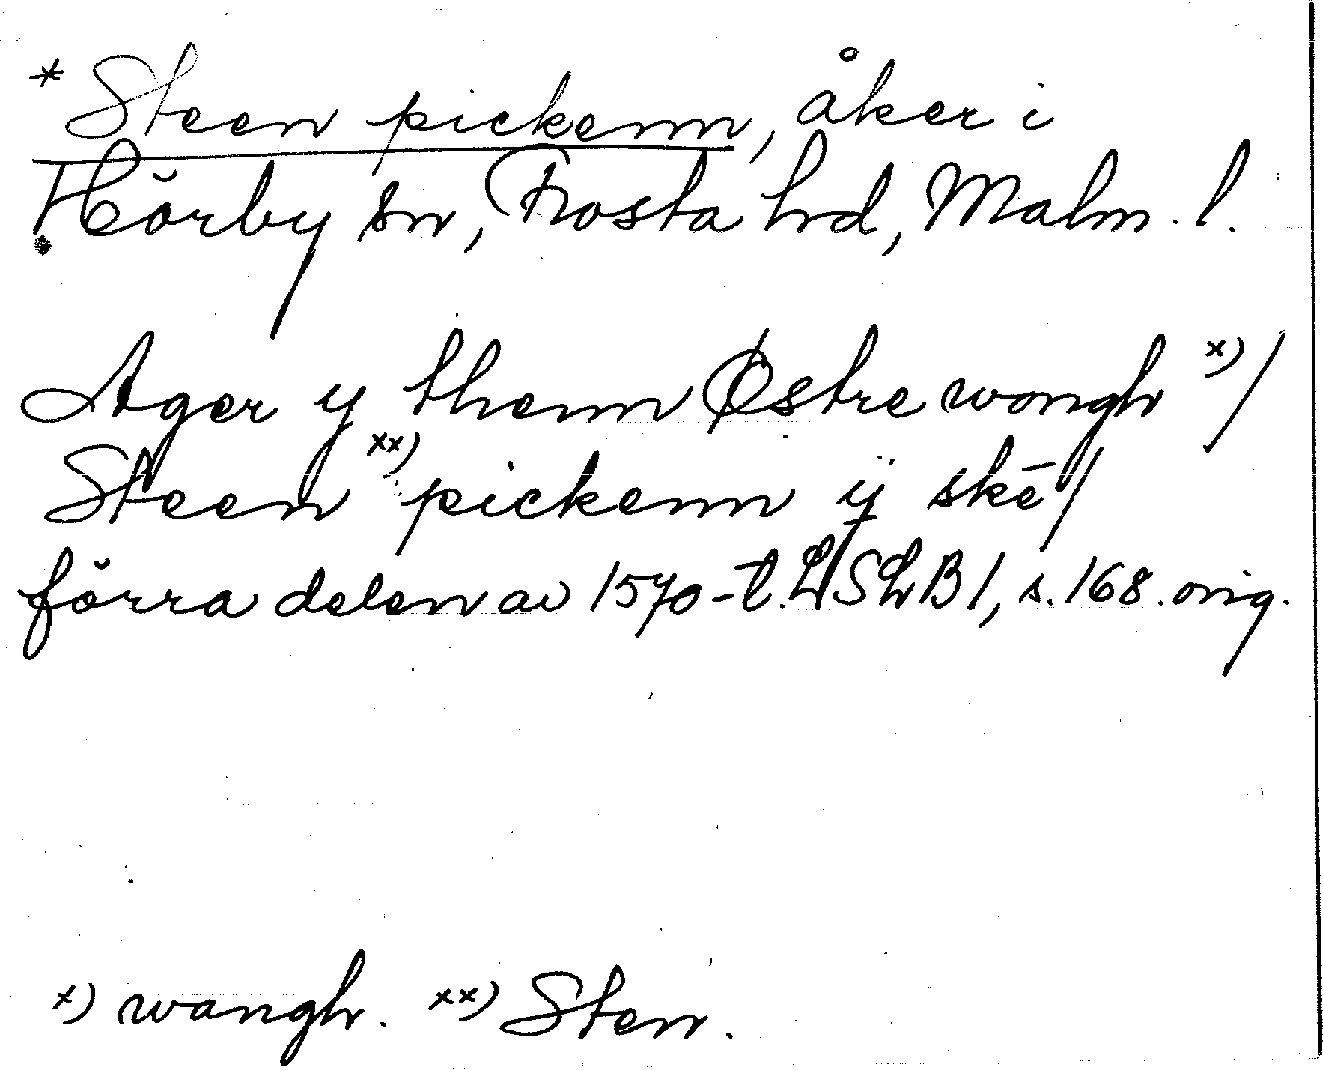 * Steen pickenn, åker i
Hörby sn, Frosta hd, Malm. l.
Ager y thenn Østre wongh x) /
Steen xx) pickenn y skē /
förra delen av 1570-t. LSLB 1, s. 168. orig.
x) wangh. xx) Sten.